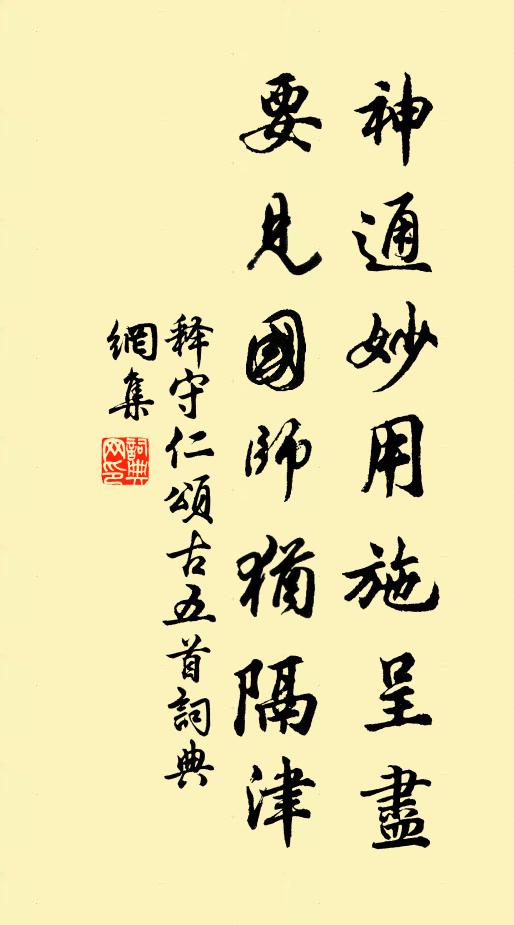 神通妙用施呈盡
要見國師猶隔津
释守仁頌古五首詞典
網集
詞典
網印